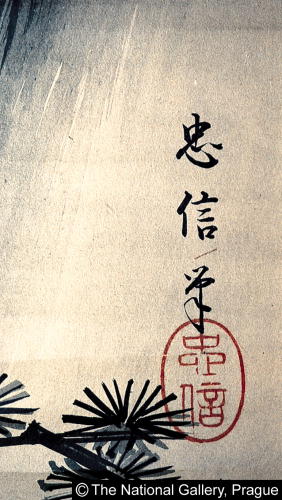 忠信筆
忠信
© The National Gallery, Prague